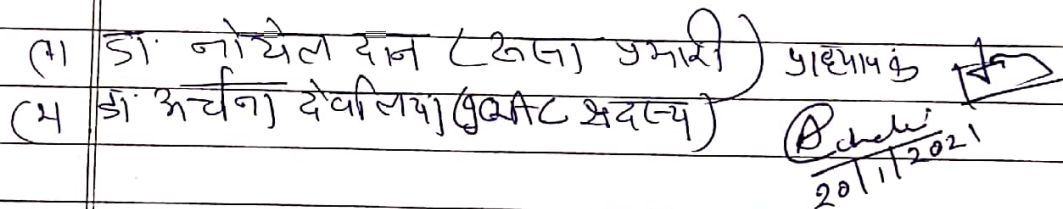 डा. नोयेल दान (रूसा प्रभारी) प्राध्यापक
डा. अर्चना देवलिया (IQAC सदस्य)
20/1/2021